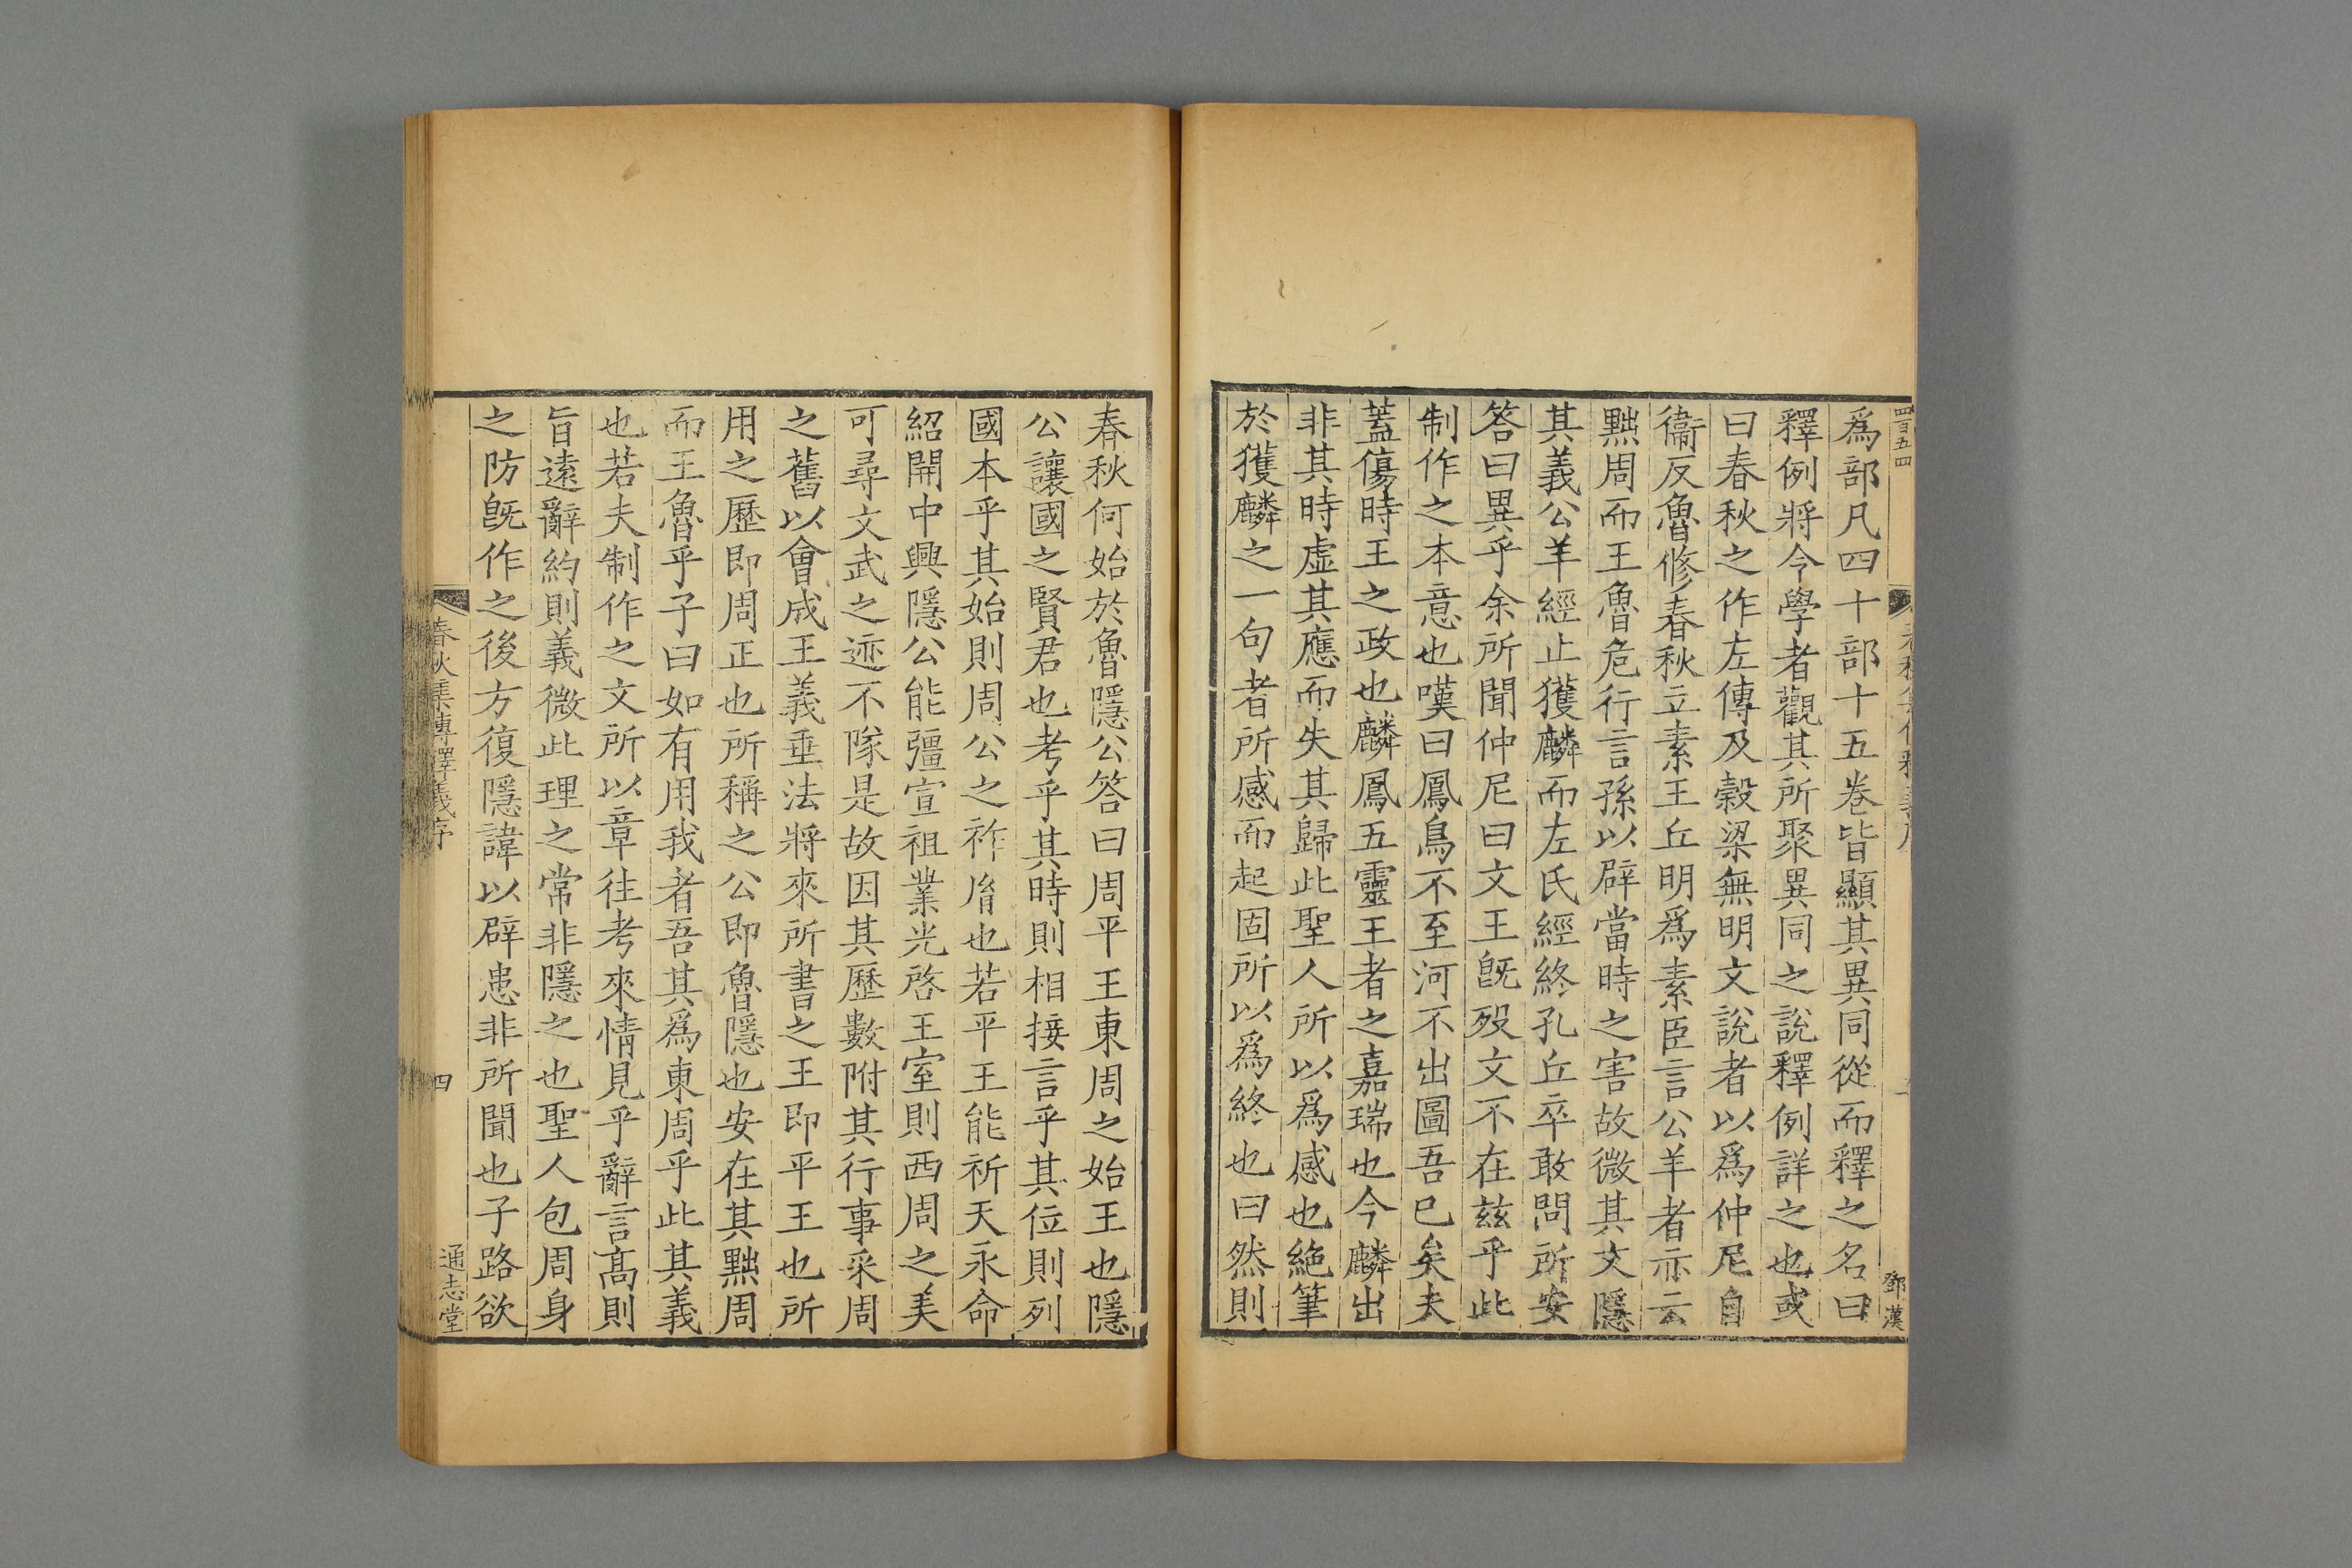 四百五四
鄧漢
爲部凡四十部十五卷皆顯其異同從而釋之名曰
釋例將令學者觀其所聚異同之說釋例詳之也或
曰春秋之作左傳及穀梁無明文說者以爲仲尼自
衞反魯修春秋立素王丘明爲素臣言公羊者亦云
黜周而王魯危行言孫以辟當時之害故微其文隱
其義公羊經止獲麟而左氏經終孔丘卒敢問所安
答曰異乎余所聞仲尼曰文王旣歿文不在兹乎此
制作之本意也嘆曰鳳鳥不至河不出圖吾已矣夫
蓋傷時王之政也麟鳳五靈王者之嘉瑞也今麟出
非其時虛其應而失其歸此聖人所以爲感也絶筆
於獲麟之一句者所感而起固所以爲終也曰然則
春秋何始於魯隱公答曰周平王東周之始王也隱
公讓國之賢君也考乎其時則相接言乎其位則列
國本乎其始則周公之祚胤也若平王能祈天永命
紹開中興隱公能彊宣祖業光啓王室則西周之美
可尋文武之迹不隊是故因其歷數附其行事采周
之舊以會成王義垂法將來所書之王即平王也所
用之歷即周正也所稱之公即魯隱也安在其黜周
而王魯乎子曰如有用我者吾其爲東周乎此其義
也若夫制作之文所以章往考來情見乎辭言高則
旨遠辭約則義微此理之常非隱之也聖人包周身
之防旣作之後方復隱諱以辟患非所聞也子路欲
春秋集傳釋義序
四
通志堂